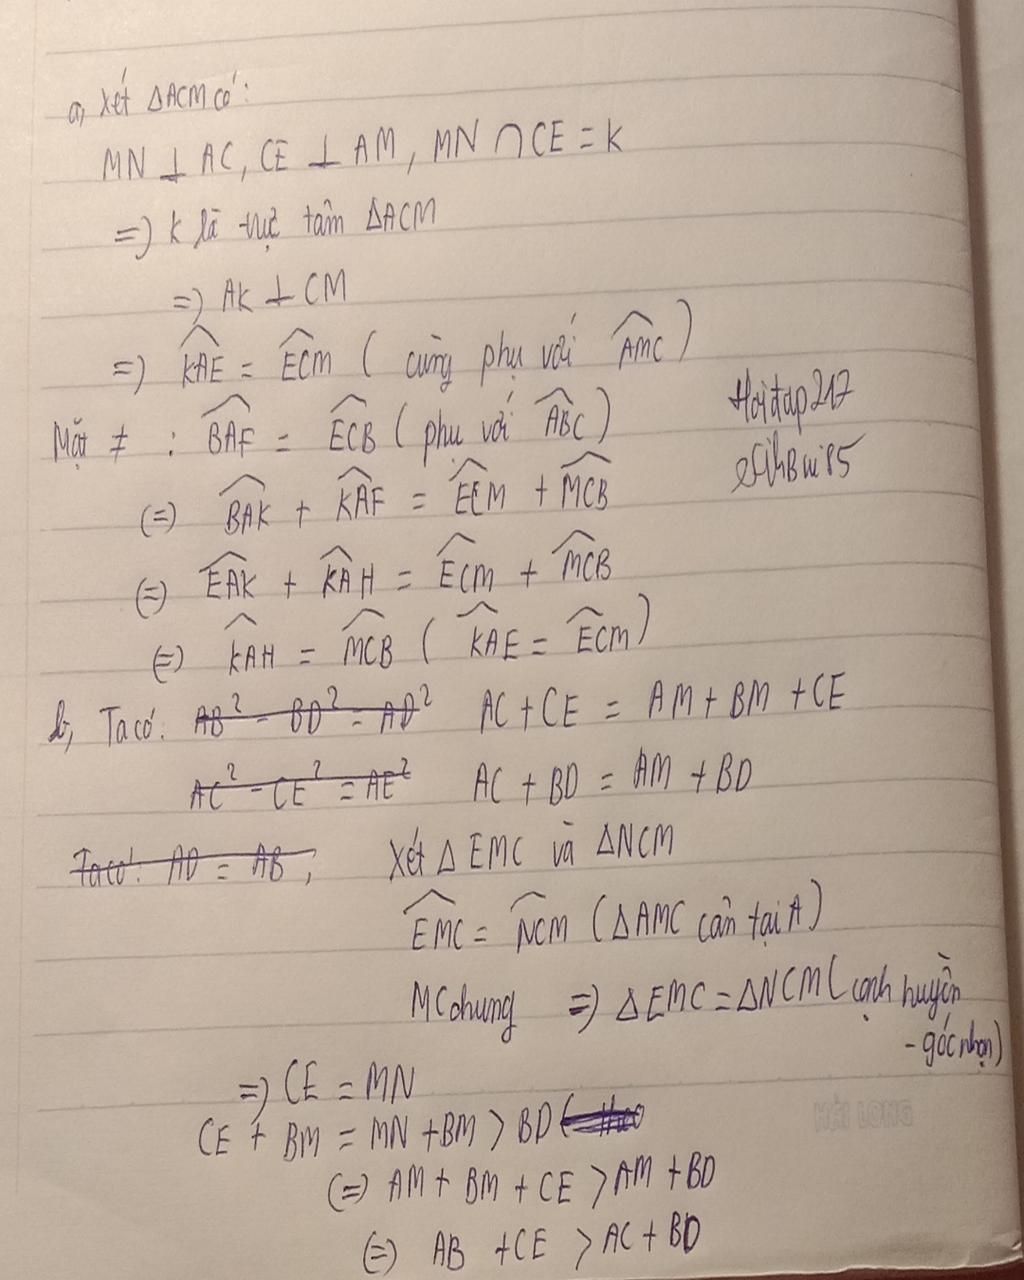 a, Xét ΔACM có:
MN ⊥ AC, CE ⊥ AM, MN ∩ CE = K
=) K là trực tâm ΔACM
=) AK ⊥ CM
=) \widehat{KAE} = \widehat{ECM} ( cùng phụ với \widehat{AMC} )
Mặt ≠ : \widehat{BAF} = \widehat{ECB} ( phụ với \widehat{ABC} )
Hoidap247
(=) \widehat{BAK} + \widehat{KAF} = \widehat{ECM} + \widehat{MCB}
(=) \widehat{EAK} + \widehat{KAH} = \widehat{ECM} + \widehat{MCB}
(=) \widehat{KAH} = \widehat{MCB} ( \widehat{KAE} = \widehat{ECM} )
b, Ta có: AB² - BD² = AD² AC + CE = AM + BM + CE
AC² - CE² = AE² AC + BD = AM + BD
Ta có: AD = AB, Xét Δ EMC và ΔNCM
\widehat{EMC} = \widehat{NCM} (ΔAMC cân tại A)
MC chung =) ΔEMC = ΔNCM ( cạnh huyền
- góc nhọn)
=) CE = MN
CE + BM = MN + BM > BD ( theo
(=) AM + BM + CE > AM + BD
(=) AB + CE > AC + BD
HẢI LONG